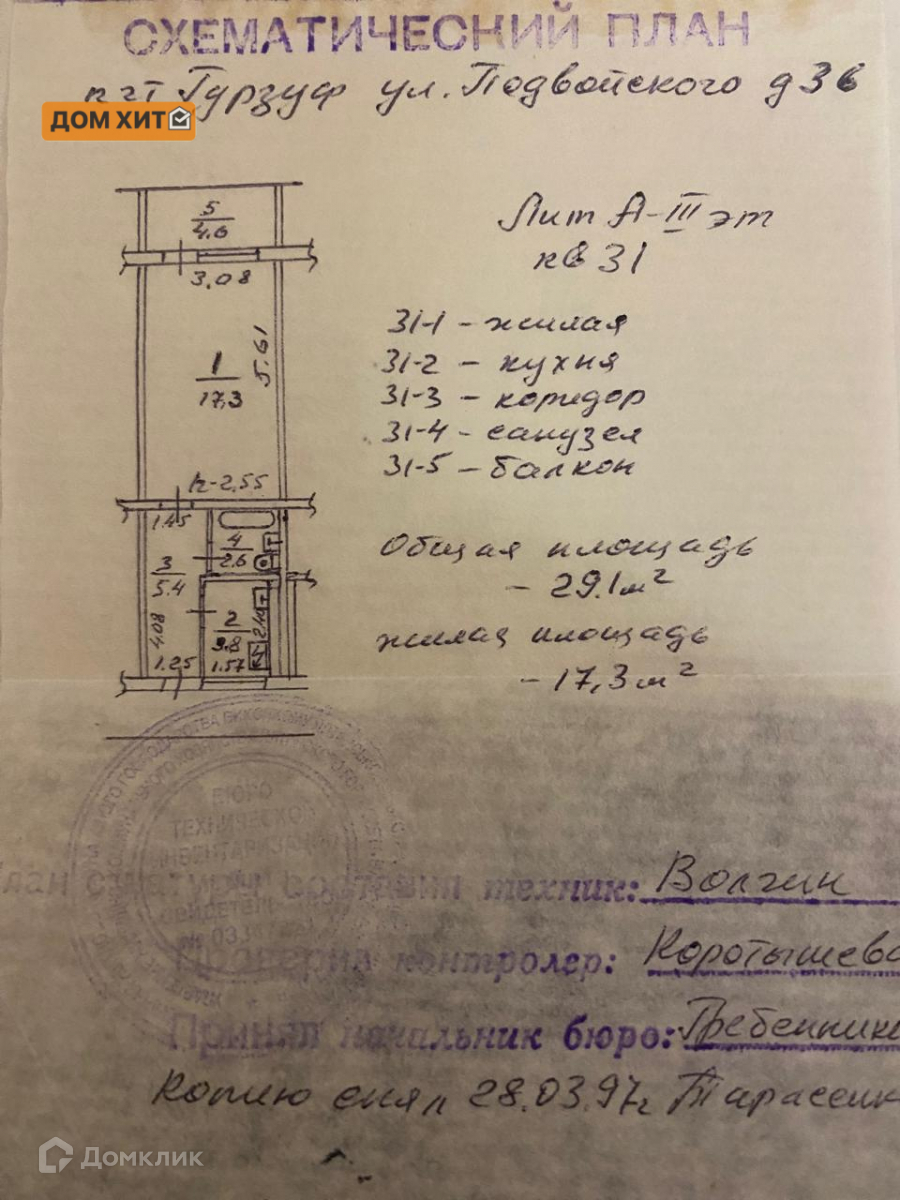 СХЕМАТИЧЕСКИЙ ПЛАН
пгт Гурзуф ул. Подвойского д 36
ДОМ ХИТ
5
4.6
3.08
5.61
1
17,3
h-2,55
1.45
4
2.6
3
5.4
2
3.8
2.40
4.08
1.25
1.57
Лит А-III эт
кв 31
31-1 - жилая
31-2 - кухня
31-3 - коридор
31-4 - санузел
31-5 - балкон
Общая площадь
- 29.1 м²
жилая площадь
- 17,3 м²
БЮРО
ТЕХНИЧЕСКОЙ
ИНВЕНТАРИЗАЦИИ
План составил техник: Волгин
Проверил контролер: Коротышева
Принял начальник бюро: Гребенник
Копию снял 28.03.97г Тарасенк
Домклик